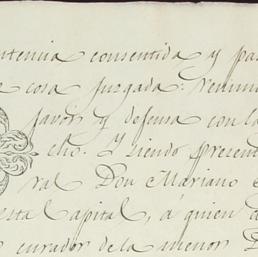 ntencia consentida y pas
cosa juzgada: renun
favor y defensa con la
cho. Y siendo present
ral Don Mariano
esta Capital, á quien
curador de la menor D